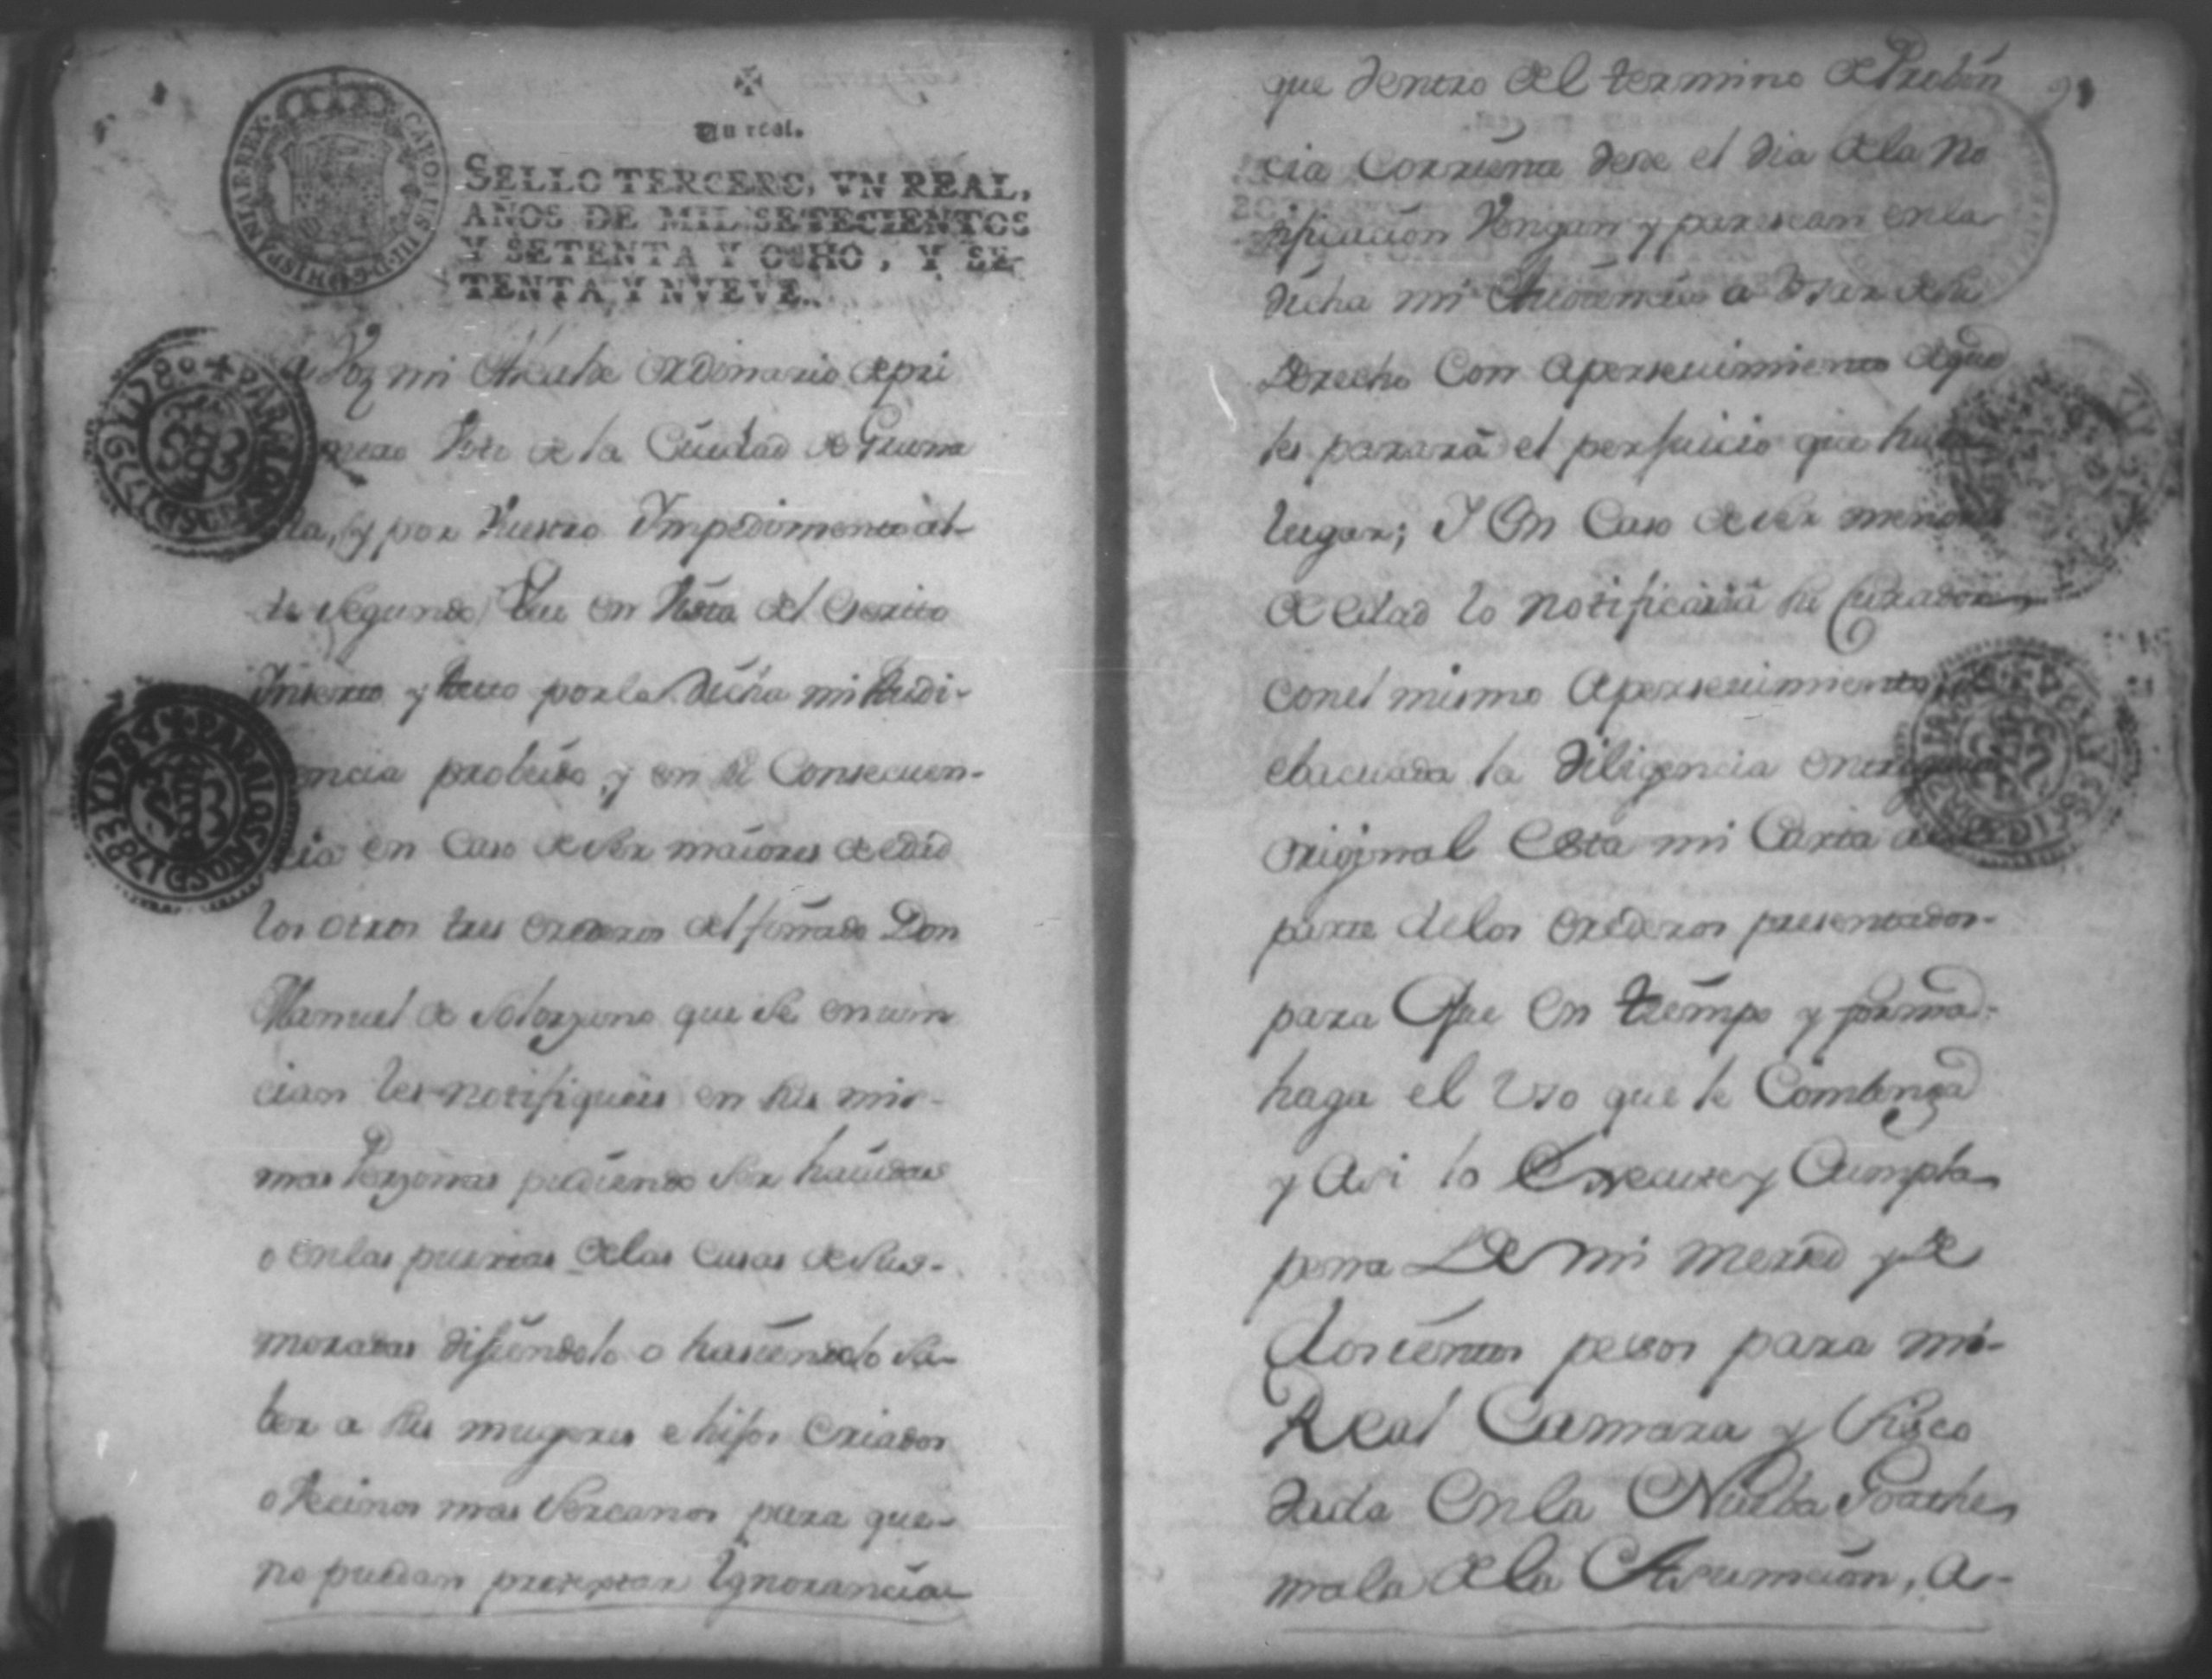 Un real.
SELLO TERCERO, VN REAL,
AÑOS DE MIL SETECIENTOS
Y SETENTA Y OCHO, Y SE-
TENTA Y NVEVE.
CAROLUS III D G HISPANIAR REX
PARA LOS AÑOS D 1779 Y 1780
PARA LOS AÑOS D 1783 Y 1784
a Voz mi Alcalde ordinario de pri
mero Voto de la Ciudad de Grana
da, y por Vuestro Impedimento al
de Segundo, Que en Vista del Escrito
Inserto y Auto por la dicha mi Audi-
encia probeido, y en su Consecuen-
cia en Caso de ser maiores de edad
los otros tres erederos del finado Don
Manuel de Solorzano que se enun
cian les notifiqueis en sus mis-
mas Perzonas pudiendo ser havidas
o en las puertas de las Casas de sus-
moradas disiendolo o hasiendolo sa-
ber a sus mugeres e hijos Criados
o Vecinos mas sercanos para que-
no puedan pretextar Ygnorancia
que dentro del termino de Probin
cia Corriente desde el dia de la no
tificacion Vengan y parescan en la
dicha mi Audiencia a Vsar de su
Derecho Con apersevimiento de que
les parará el perjuicio que hubiere
lugar; Y En Caso de ser menores
de edad lo notificará su Curador
con el mismo apersevimiento
ebacuada la diligencia
original Esta mi Carta
parte de los erederos presentados-
para Que en tiempo y forma
haga el Vso que le Combenga
y Asi lo Execute y Cumpla
pena De mi merced y de
dosientos pesos para mi-
Real Camara y Fisco
dada En la Nueba Goathe
mala de la Asumcion, A-